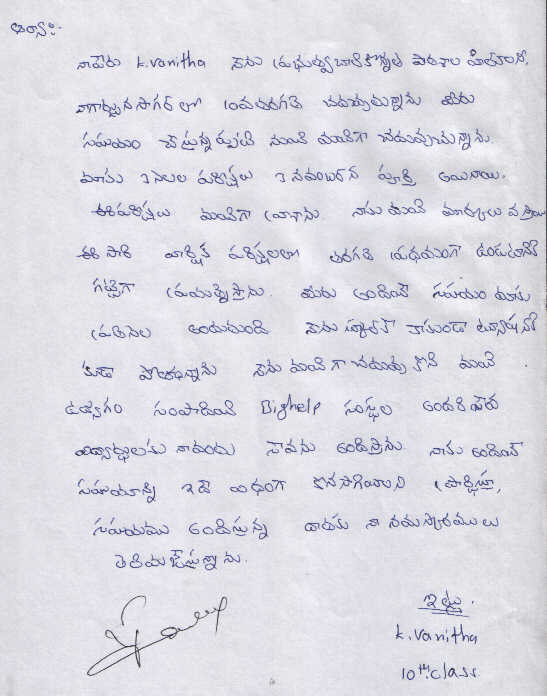 నాపేరు K.Vanitha నేను ప్రభుత్వ బాలికోన్నత పాఠశాల హిల్ కాలని,
నాగార్జున సాగర్ లో 10వ తరగతి చదువుతున్నాను మీరు
సహాయం చేస్తున్నప్పటి నుంచి మంచిగా చదువుచున్నాను.
మాకు 3 నెలల పరీక్షలు 3 నవంబర్ న పూర్తి అయినాయి.
ఈ పరీక్షలు మంచిగా వ్రాశాను. నాకు మంచి మార్కులు వస్తాయి
ఈ సారి వార్షిక పరీక్షలలో తరగతి ప్రథమంగా ఉండుటానికి
గట్టిగా ప్రయత్నిస్తాను. మీరు అందించే సహాయం మాకు
ప్రతినెల అందుతుంది నేను స్కూల్ కే కాకుండా ట్యూషన్ కి
కూడా పోతున్నాను నేను మంచిగా చదువుకొని మంచి
ఉద్యోగం సంపాదించి Bighelp సంస్థల అందరి పేరు
విద్యార్థులకు నావంతు సేవను అందిస్తాను. నాకు అందించే
సహాయాన్ని ఇదే విధంగా కొనసాగించాలని ప్రార్థిస్తూ,
సహాయము అందిస్తున్న వారికి నా నమస్కారములు
తెలియజేస్తున్నాను.
ఇట్లు.
K.Vanitha
10th class